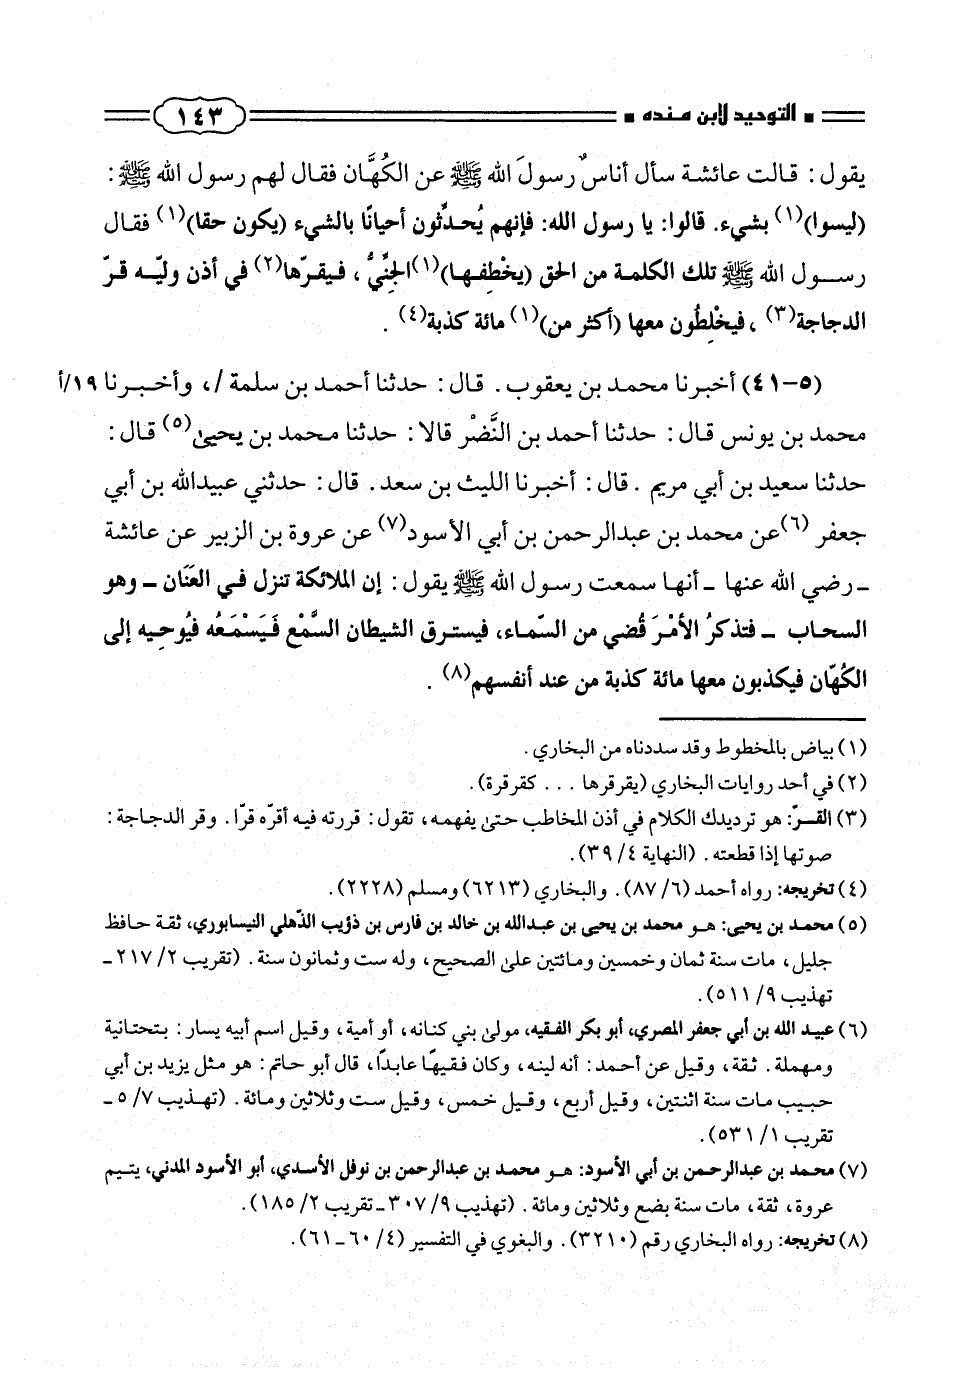 ▪ التوحيد لابن منده ▪ ١٤٣
يقول: قالت عائشة سأل أناسٌ رسولَ الله ﷺ عن الكُهَّان فقال لهم رسول الله ﷺ:
(ليسوا)(١) بشيء. قالوا: يا رسول الله: فإنهم يُحدثّون أحيانًا بالشيء (يكون حقا)(١) فقال
رسول الله ﷺ تلك الكلمة من الحق (يخْطِفها)(١) الجِنِّيُّ، فيقرّها(٢) في أذن وليّه قرّ
الدجاجة(٣)، فيخْلِطُون معها (أكثر من)(١) مائة كذبة(٤).
(٥-٤١) أخبرنا محمد بن يعقوب. قال: حدثنا أحمد بن سلمة /، وأخبرنا ١٩/أ
محمد بن يونس قال: حدثنا أحمد بن النَّضْر قالا: حدثنا محمد بن يحيىٰ(٥) قال:
حدثنا سعيد بن أبي مريم. قال: أخبرنا الليث بن سعد. قال: حدثني عبيدالله بن أبي
جعفر(٦) عن محمد بن عبدالرحمن بن أبي الأسود(٧) عن عروة بن الزبير عن عائشة
ـ رضي الله عنها ـ أنها سمعت رسول الله ﷺ يقول: إن الملائكة تنزل في العَنَان ـ وهو
السحاب ـ فتذكرُ الأمْرَ قُضي من السّماء، فيسترق الشيطان السَّمْع فَيَسْمَعُه فيُوحيه إلى
الكُهّان فيكذبون معها مائة كذبة من عند أنفسهم(٨).
(١) بياض بالمخطوط وقد سددناه من البخاري.
(٢) في أحد روايات البخاري (يقرقرها . . . كقرقرة).
(٣) القرّ: هو ترديدك الكلام في أذن المخاطب حتىٰ يفهمه، تقول: قررته فيه أقرّه قرّا. وقر الدجاجة:
صوتها إذا قطعته. (النهاية ٤/ ٣٩).
(٤) تخريجه: رواه أحمد (٦/ ٨٧). والبخاري (٦٢١٣) ومسلم (٢٢٢٨).
(٥) محمد بن يحيى: هو محمد بن يحيى بن عبدالله بن خالد بن فارس بن ذؤيب الذّهلي النيسابوري، ثقة حافظ
جليل، مات سنة ثمان وخمسين ومائتين علىٰ الصحيح، وله ست وثمانون سنة. (تقريب ٢/ ٢١٧ ـ
تهذيب ٩/ ٥١١).
(٦) عبيد الله بن أبي جعفر المصري، أبو بكر الفقيه، مولىٰ بني كنانه، أو أمية، وقيل اسم أبيه يسار: بتحتانية
ومهملة. ثقة، وقيل عن أحمد: أنه لينه، وكان فقيهًا عابدًا، قال أبو حاتم: هو مثل يزيد بن أبي
حبيب مات سنة اثنتين، وقيل أربع، وقيل خمس، وقيل ست وثلاثين ومائة. (تهذيب ٧/ ٥ ـ
تقريب ١/ ٥٣١).
(٧) محمد بن عبدالرحمن بن أبي الأسود: هو محمد بن عبدالرحمن بن نوفل الأسدي، أبو الأسود المدني، يتيم
عروة، ثقة، مات سنة بضع وثلاثين ومائة. (تهذيب ٩/ ٣٠٧ ـ تقريب ٢/ ١٨٥).
(٨) تخريجه: رواه البخاري رقم (٣٢١٠). والبغوي في التفسير (٤/ ٦٠ ـ ٦١).